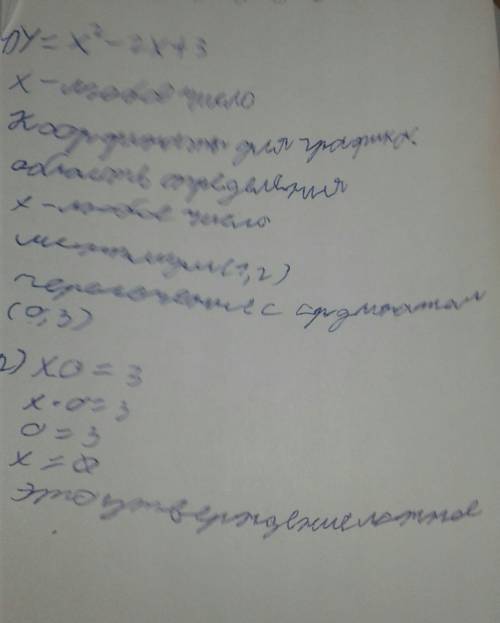 1) y = x² - 2x + 3
x - любое число
Координаты для графика
область определения
x - любое число
минимум (1, 2)
пересечение с ординатам
(0, 3)
2) x0 = 3
x · 0 = 3
0 = 3
x = Ø
Это утверждение ложное